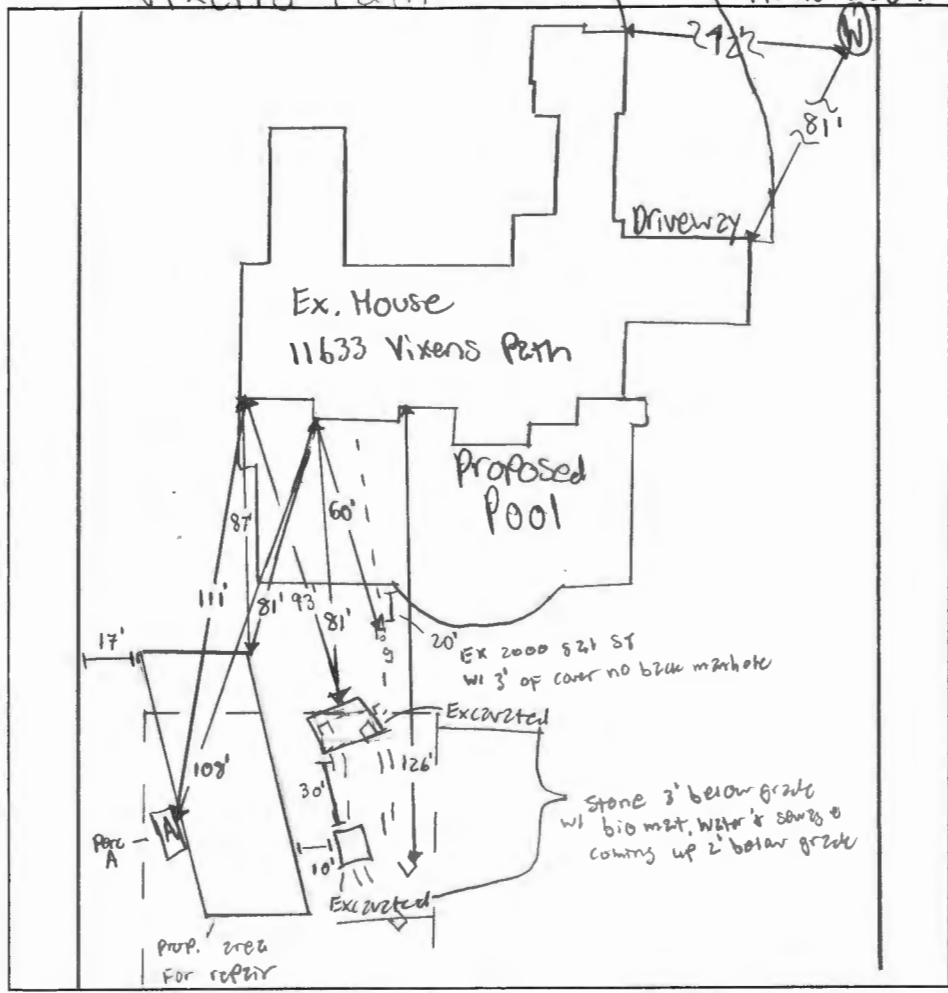 Vixens Path
W
81'
Driveway
Ex. House
11633 Vixens Path
Proposed
Pool
87'
60'
111'
81'
93'
81'
20'
17'
Ex 2000 gal ST
w/ 3' of cover no back manhole
Excavated
108'
126'
30'
Stone 3' below grade
w/ bio mat, water & sewage
coming up 2' below grade
Perc
A
A
10'
Excavated
Prop. area
For repair